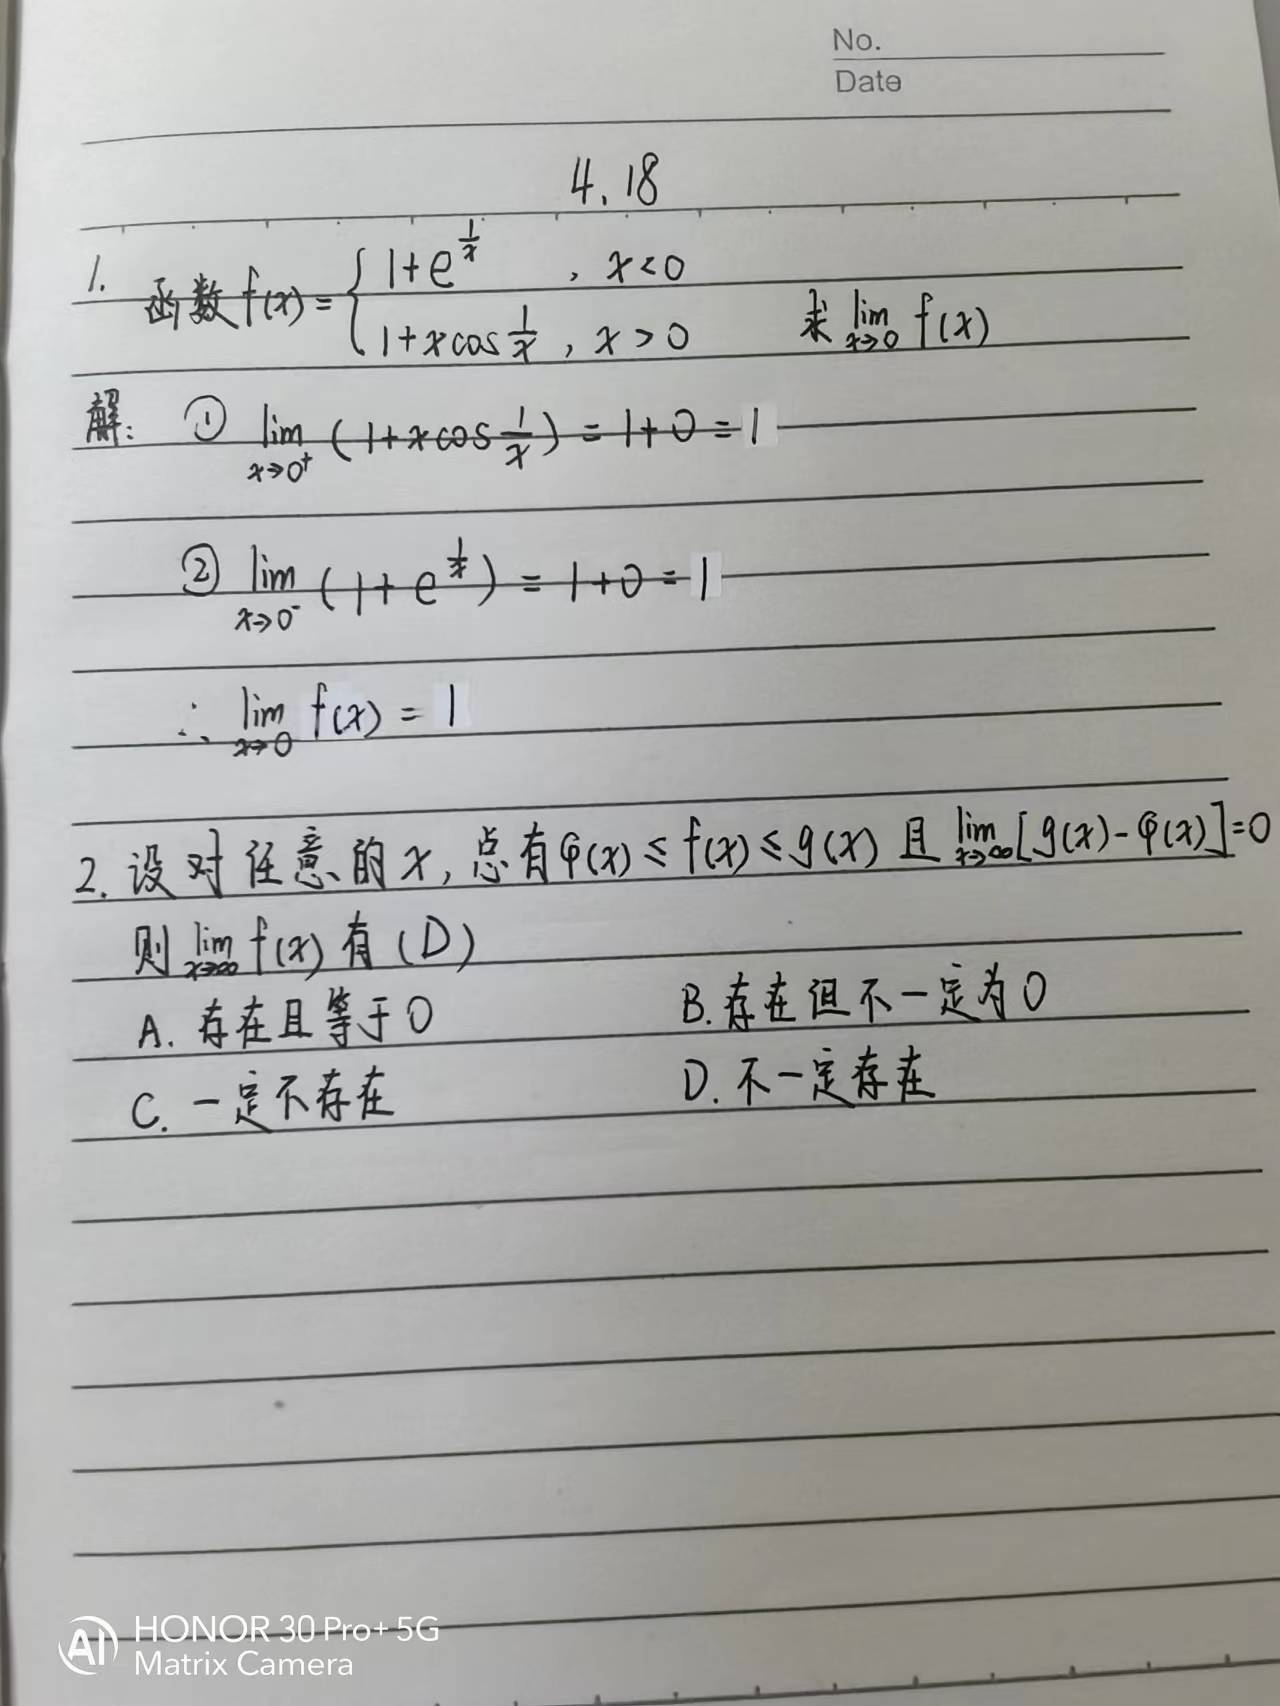 No.
Date
4.18
1. 函数f(x)={1+e^(1/x), x<0
1+xcos 1/x, x>0 求 lim x→0 f(x)
解: ① lim x→0⁺ (1+xcos 1/x) = 1+0 = 1
② lim x→0⁻ (1+e^(1/x)) = 1+0 = 1
∴ lim x→0 f(x) = 1
2. 设对任意的x, 总有φ(x)≤f(x)≤g(x)且 lim x→∞ [g(x)-φ(x)]=0
则 lim x→∞ f(x)有(D)
A. 存在且等于0 B. 存在但不一定为0
C. 一定不存在 D. 不一定存在
AI HONOR 30 Pro+ 5G
Matrix Camera